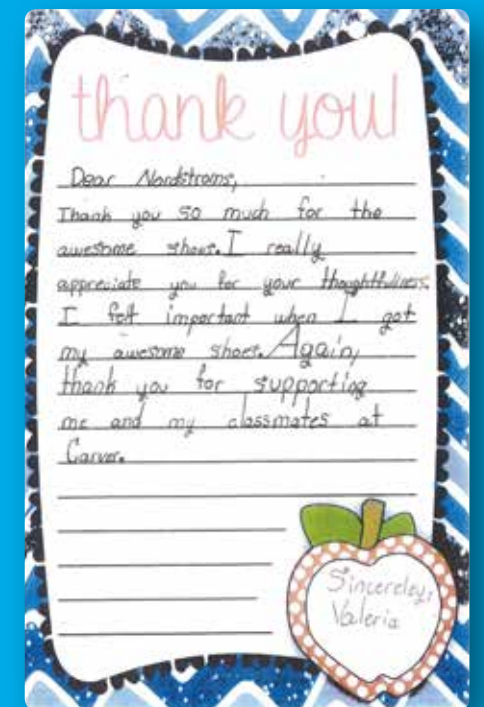 thank you!
Dear Nordstroms,
Thank you so much for the
awesome shoes. I really
appreciate you for your thoughtfullness.
I felt important when I got
my awesome shoes. Again,
thank you for supporting
me and my classmates at
Carver.
Sincereley,
Valeria